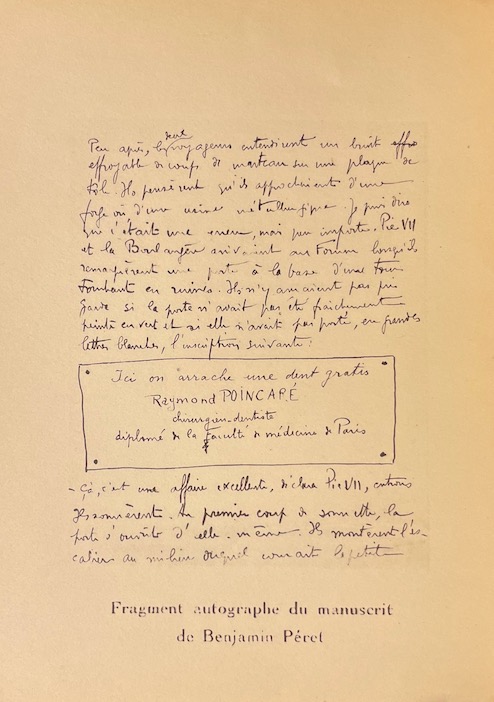 deux
Peu après, les voyageurs entendirent un bruit
effroyable de coups de marteau sur une plaque de
tôle. Ils pensèrent qu'ils approchaient d'une
forge ou d'une usine métallurgique. Je puis dire
que c'était une erreur, mais peu importe. Pie VII
et la Boulangère arrivaient au Forum lorsqu'ils
remarquèrent une porte à la base d'une tour
tombant en ruines. Ils n'y auraient pas pris
garde si la porte n'avait pas été fraîchement
peinte en vert et si elle n'avait pas porté, en grandes
lettres blanches, l'inscription suivante :
Ici on arrache une dent gratis
Raymond POINCARÉ
chirurgien-dentiste
diplomé de la Faculté de médecine de Paris
- Çà, c'est une affaire excellente, déclara Pie VII, entrons
Ils sonnèrent. Au premier coup de sonnette, la
porte s'ouvrit d'elle-même. Ils montèrent l'es-
calier au milieu duquel courait
Fragment autographe du manuscrit
de Benjamin Péret